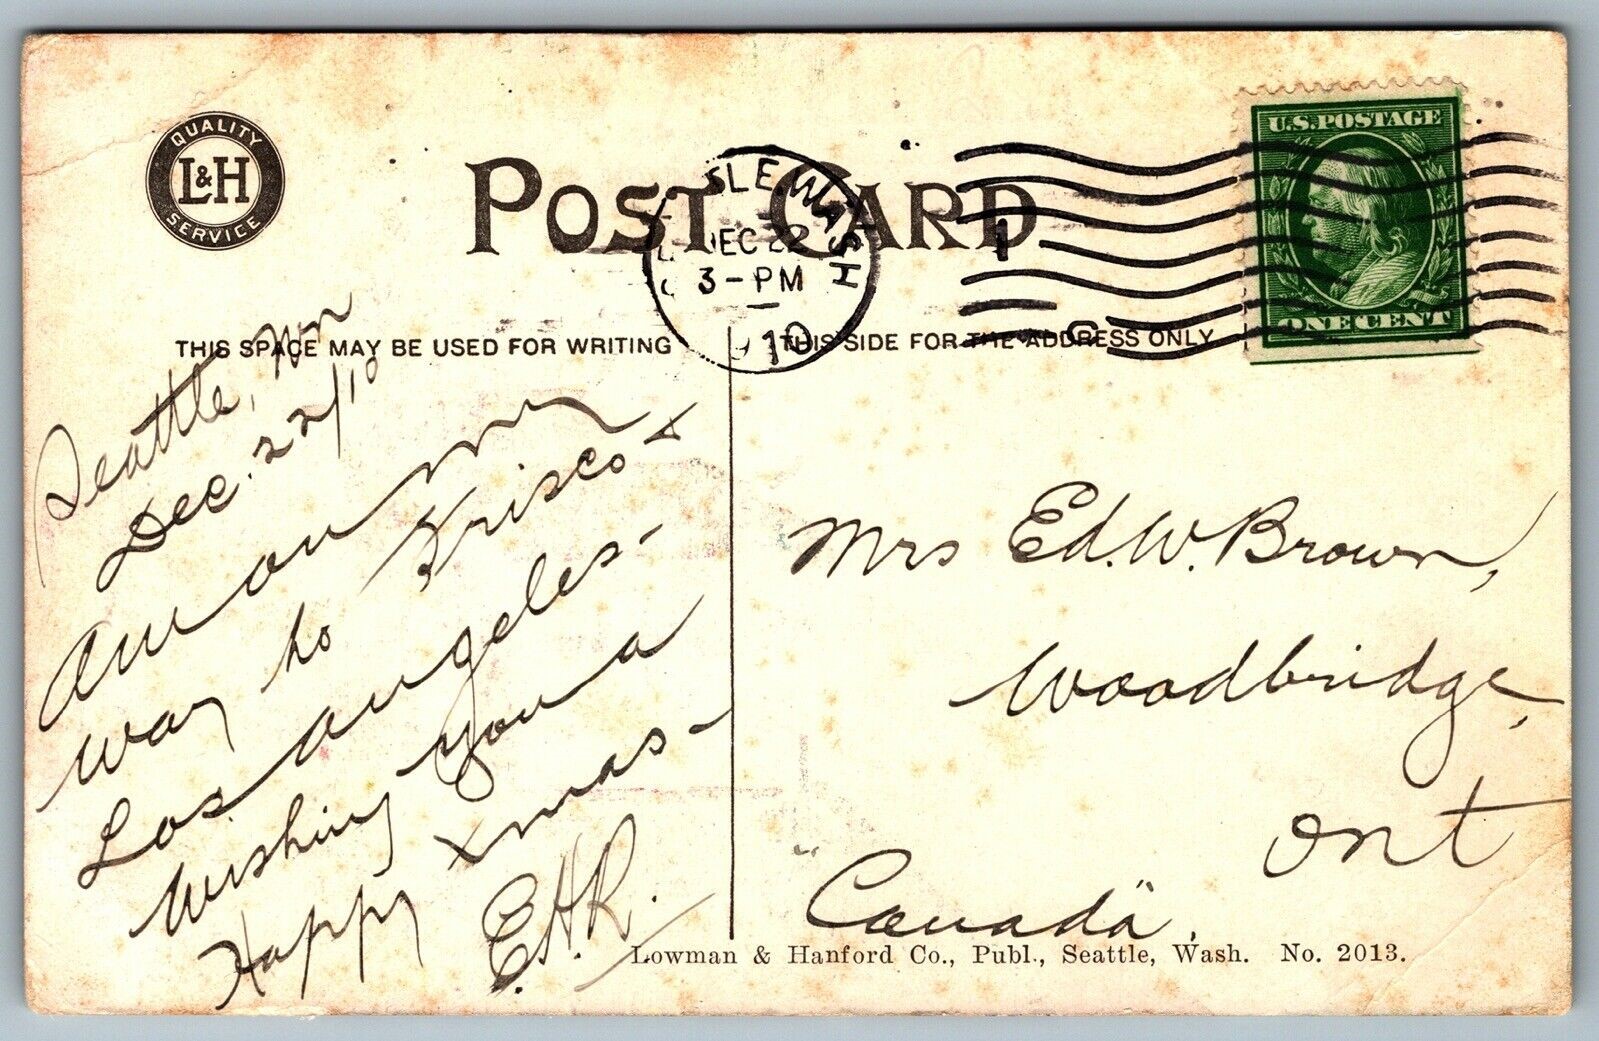 QUALITY
L&H
SERVICE
POST CARD
SLE, WASH
DEC 22
3-PM
1910
U.S. POSTAGE
ONE CENT
THIS SPACE MAY BE USED FOR WRITING
THIS SIDE FOR THE ADDRESS ONLY
Seattle, Wn
Dec. 22/10
Am on my
way to Frisco &
Los Angeles -
Wishing you a
Happy Xmas -
E.H.R.
Mrs Ed. W. Brown,
Woodbridge,
Ont
"Canada".
Lowman & Hanford Co., Publ., Seattle, Wash. No. 2013.